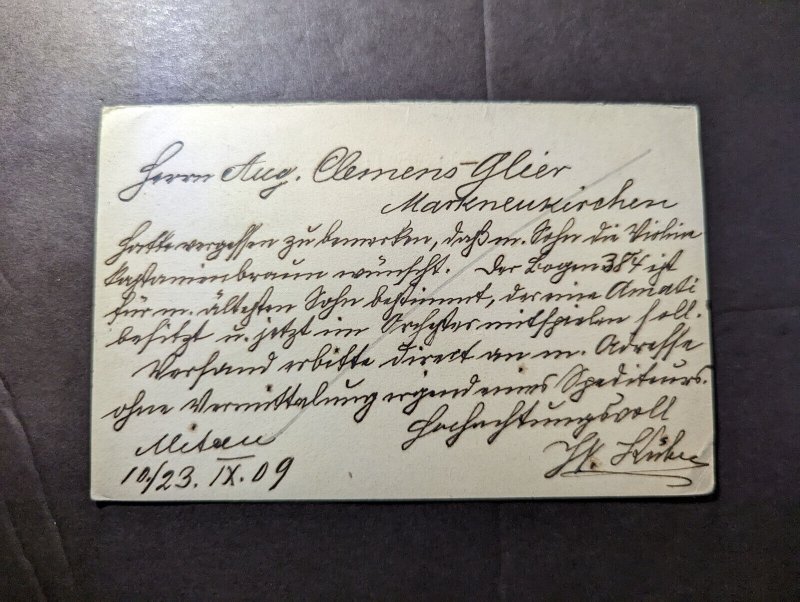 Herrn Aug. Clemens Glier
Markneukirchen
Hatte vergessen zu bemerken, daß m. Sohn die Violine
kastanienbraun wünscht. Der Bogen 384 ist
für m. ältesten Sohn bestimmt, der eine Amati
besitzt u. jetzt im Orchester mitspielen soll.
Versand erbitte direct an m. Adresse
ohne Vermittelung irgend eines Spediteurs.
Hochachtungsvoll
Mitau
10./23. IX. 09